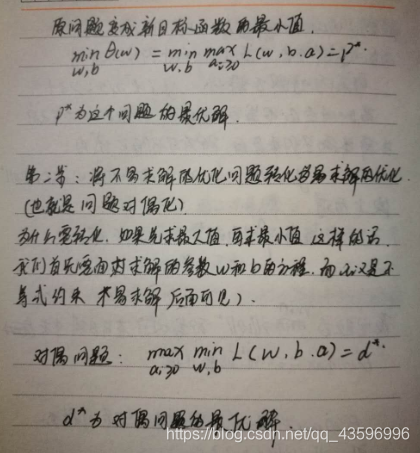 原问题变成新目标函数的最小值.
min θ(w) = min max L(w,b.a)=p*.
w,b w.b ai≥0
p*为这个问题的最优解.
第二步:将不易求解的优化问题转化为易求解的优化.
(也就是问题对偶化)
为什么要转化,如果先求最大值,再求最小值 这样的话.
我们首先要面对求解的参数w和b的方程.而αi又是不
等式约束 不易求解(后面可见).
对偶问题: max min L(w,b.a)=d*.
ai≥0 w,b
d*为对偶问题的最优解.
https://blog.csdn.net/qq_43596996